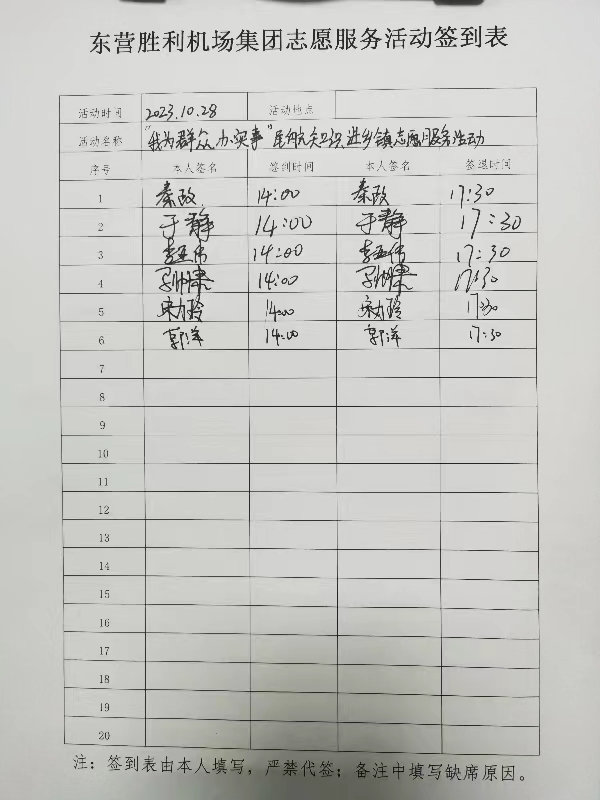 东营胜利机场集团志愿服务活动签到表
活动时间 2023.10.28 活动地点
活动名称 "我为群众办实事"民航知识进乡镇志愿服务活动
序号 本人签名 签到时间 本人签名 签退时间
1 秦政 14:00 秦政 17:30
2 于静 14:00 于静 17:30
3 14:00 17:30
4 14:00 17:30
5 14:00 17:30
6 郭洋 14:00 郭洋 17:30
7
8
9
10
11
12
13
14
15
16
17
18
19
20
注：签到表由本人填写，严禁代签；备注中填写缺席原因。